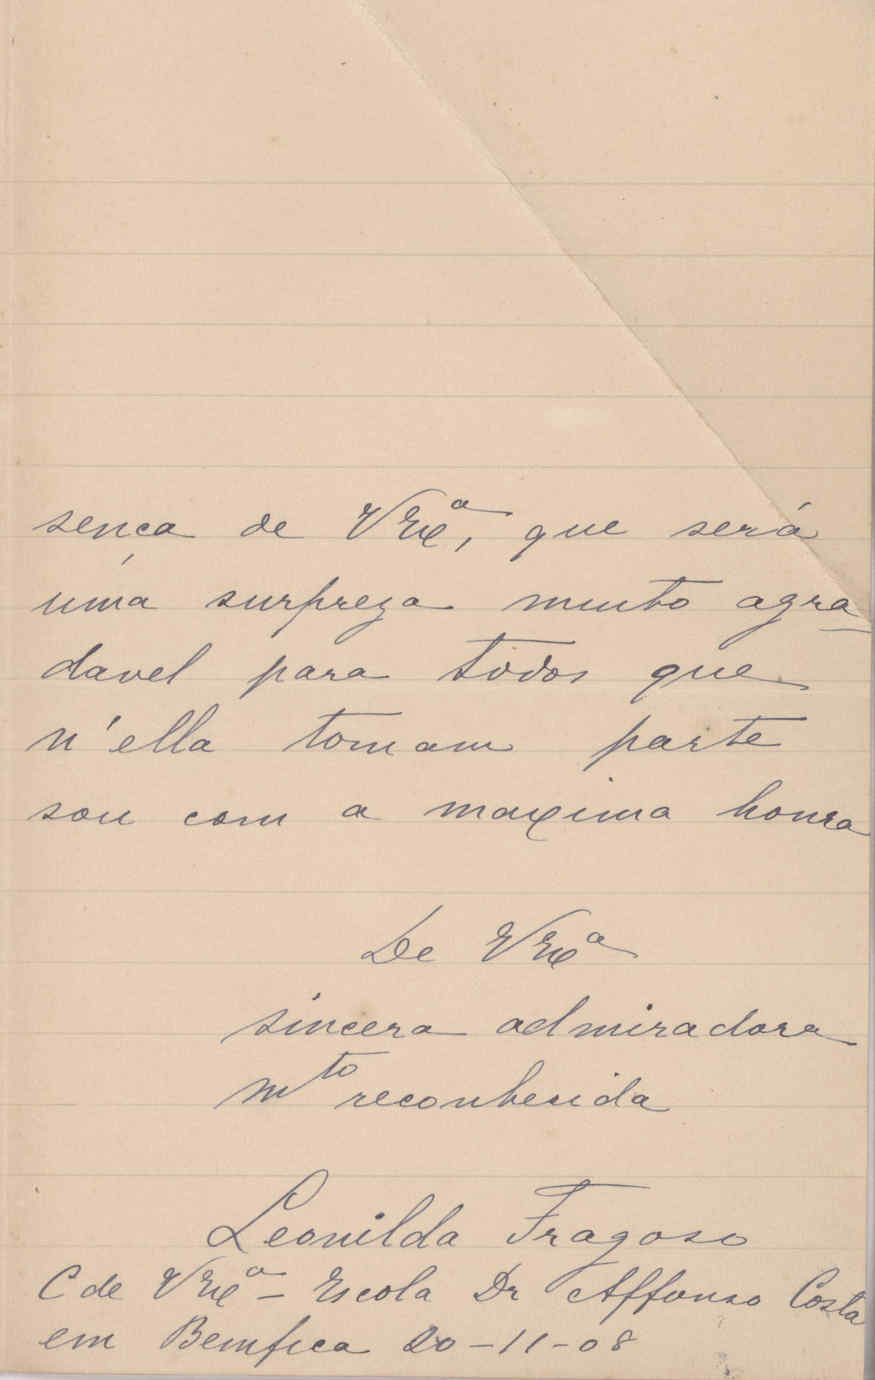 sença de V Exª, que será
uma surpreza muito agra-
davel para todos que
n'ella tomam parte
sou com a maxima honra
De V Exª
sincera admiradora
mto reconhecida
Leonilda Fragoso
C de V Exª - Escola Dr Affonso Costa
em Bemfica 20-11-08